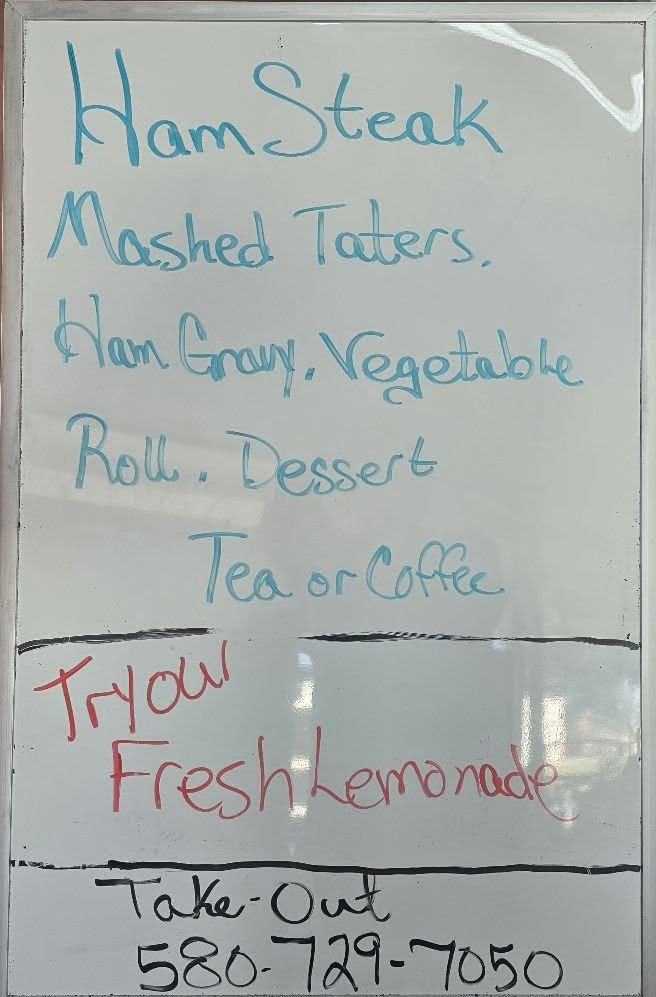 Ham Steak
Mashed Taters.
Ham Gravy. Vegetable
Roll. Dessert
Tea or Coffee
Try our
Fresh Lemonade
Take-Out
580-729-7050